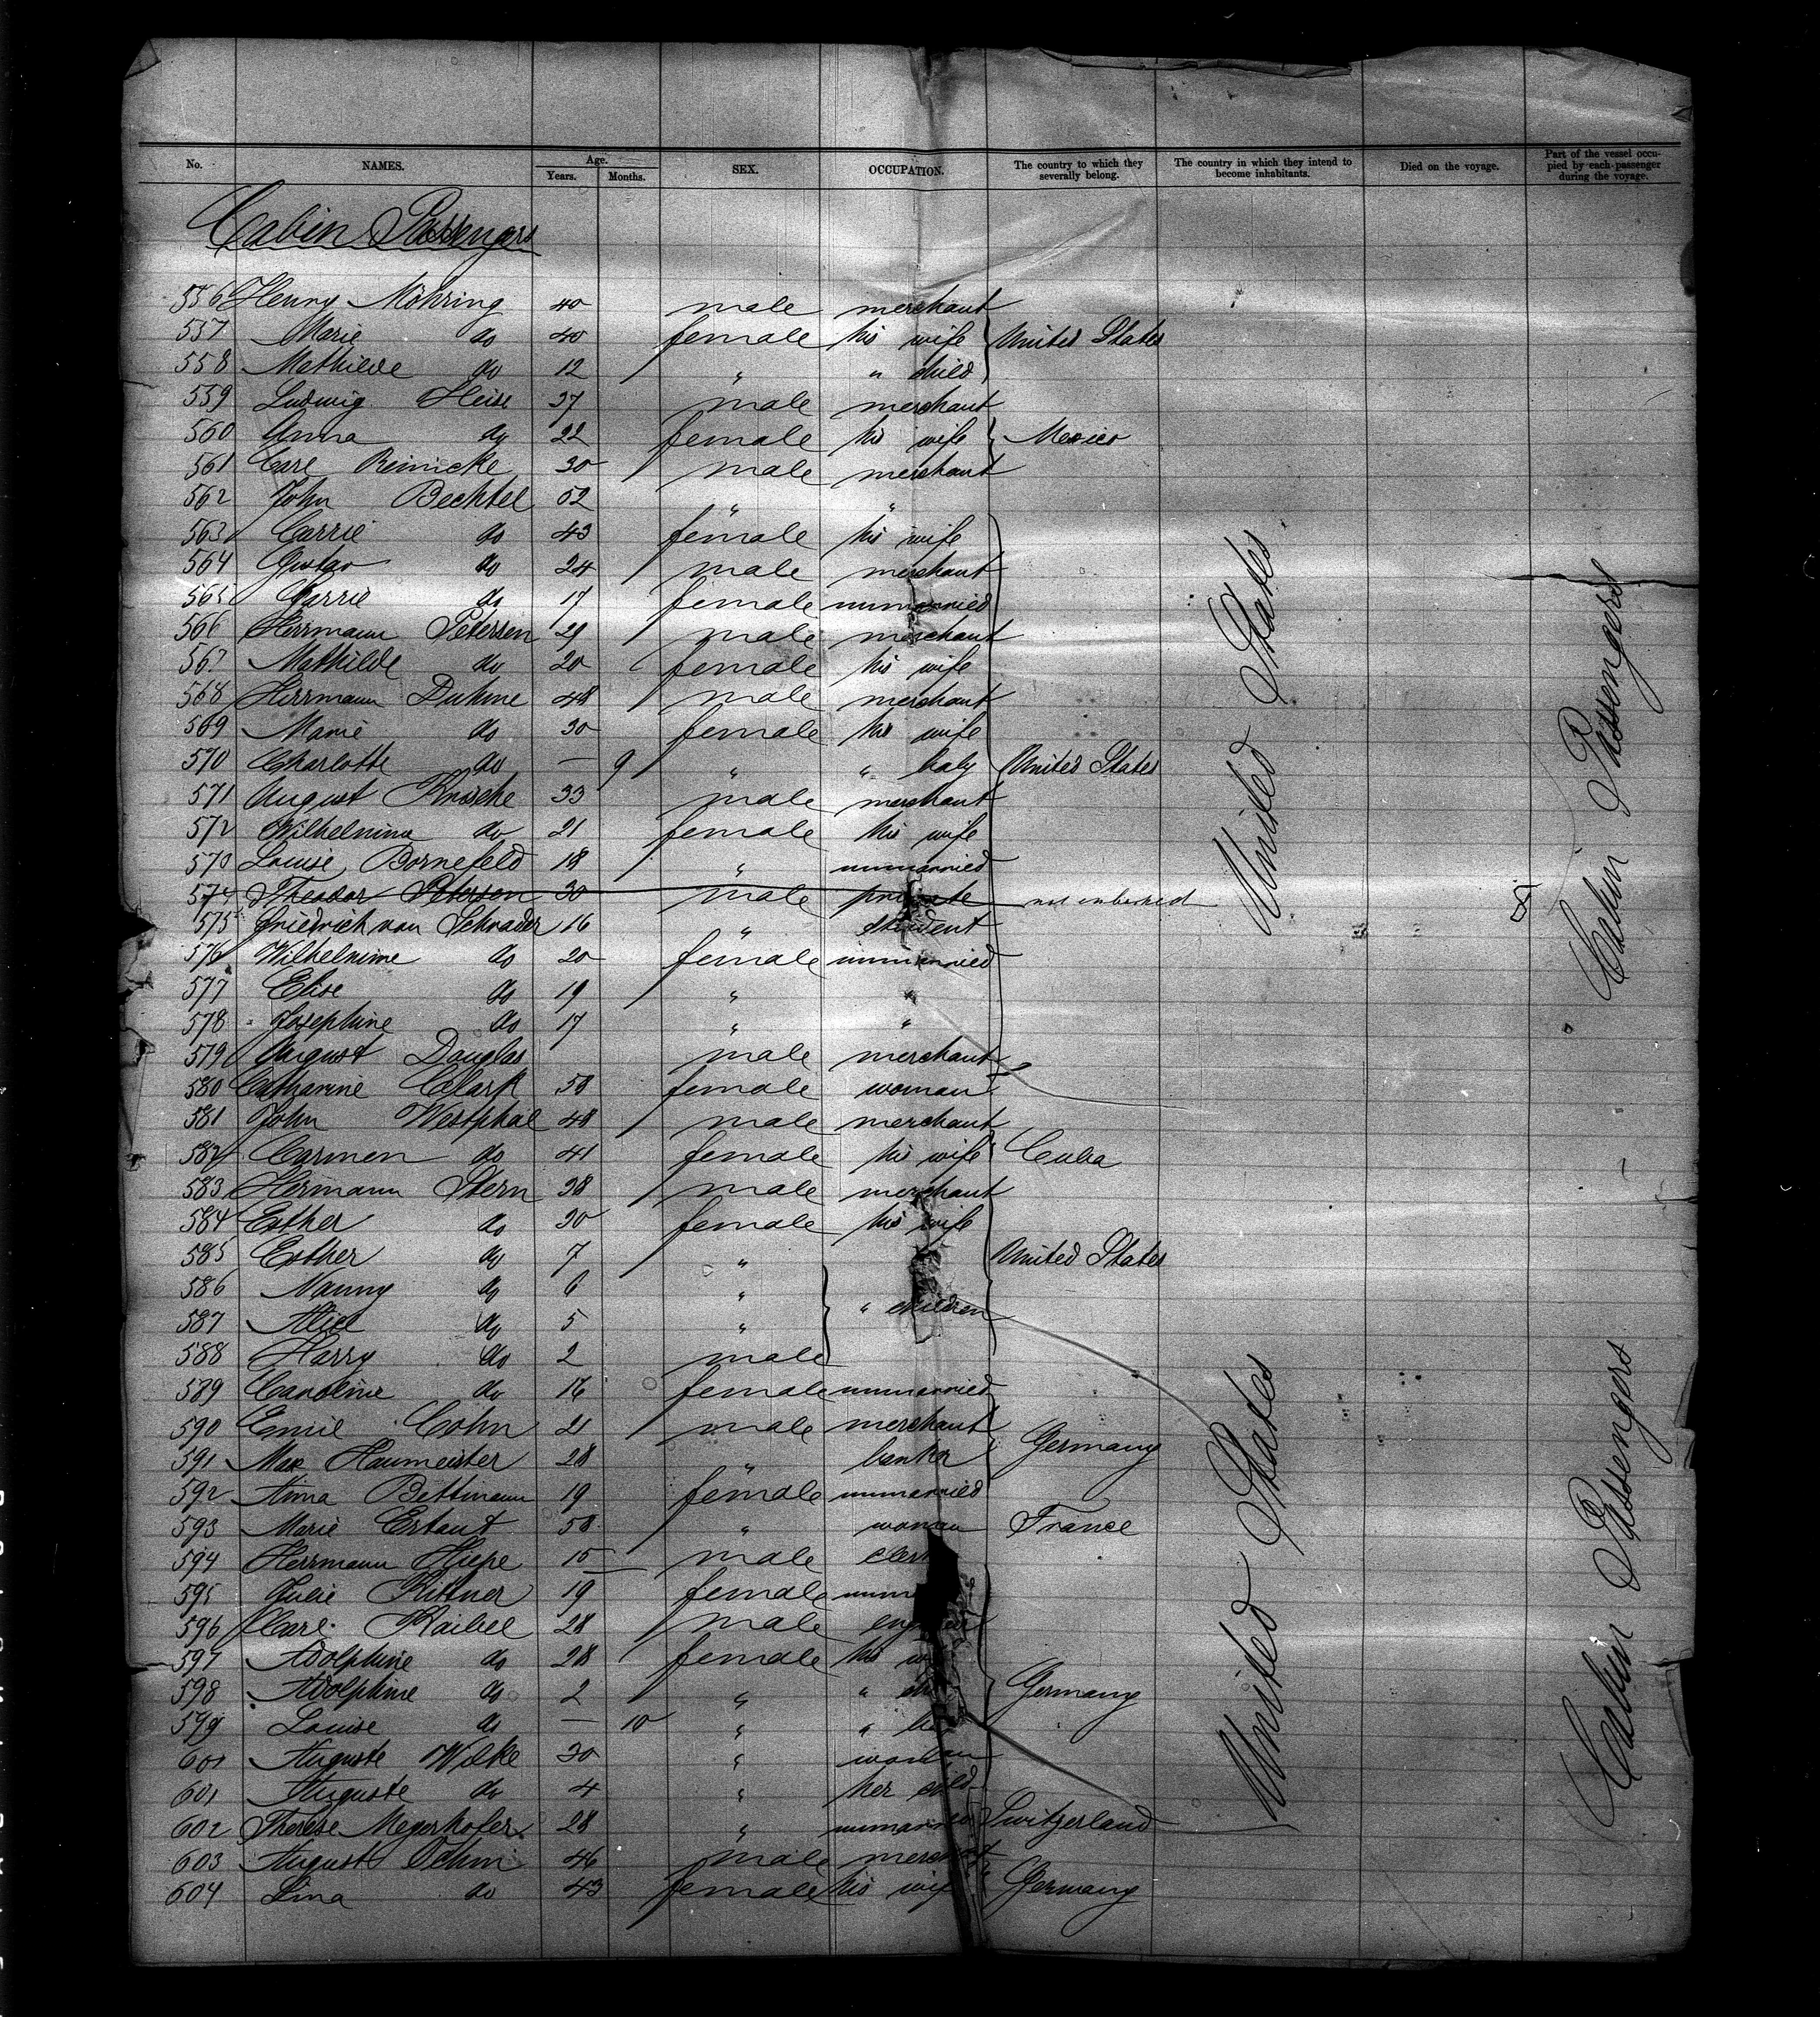 No. NAMES. Age. Years. Months. SEX. OCCUPATION. The country to which they severally belong. The country in which they intend to become inhabitants. Died on the voyage. Part of the vessel occupied by each passenger during the voyage.
Cabin Passengers
556 Henry Möhring 40 male merchant
557 Marie do 40 female his wife United States
558 Mathilde do 12 " " child
559 Ludwig Heise 37 male merchant
560 Anna do 22 female his wife Mexico
561 Carl Reinicke 30 male merchant
562 John Bechtel 52 " "
563 Carrie do 43 female his wife
564 Gustav do 24 male merchant
565 Carrie do 17 female unmarried
566 Herrmann Petersen 29 male merchant
567 Mathilde do 20 female his wife
568 Herrmann Duhme 48 male merchant
569 Marie do 30 female his wife
570 Charlotte do — 9 " " baby United States
571 August Knosche 33 male merchant
572 Wilhelmine do 21 female his wife
573 Louise Bornefeld 18 " unmarried
574 Theodor Petersen 30 male private not embarked
575 Friedrich von Schrader 16 " student
576 Wilhelmine do 20 female unmarried
577 Elise do 19 " "
578 Josephine do 17 " "
579 August Douglas male merchant
580 Catharine Clark 58 female woman
581 John Westphal 48 male merchant
582 Carmen do 41 female his wife Cuba
583 Hermann Stern 38 male merchant
584 Esther do 30 female his wife
585 Esther do 7 " United States
586 Nanny do 6 "
587 Alice do 5 " " children
588 Harry do 2 male
589 Caroline do 16 female unmarried
590 Emil Cohn 21 male merchant
591 Max Haumeister 28 " banker Germany
592 Anna Bettmann 19 female unmarried
593 Marie Ertaut 58 " woman France
594 Herrmann Hiepe 15 male clerk
595 Julie Rittner 19 female
596 Carl Kaibel 28 male
597 Adolphine do 28 female his
598 Adolphine do 2 " " Germany
599 Louise do — 10 " "
600 Auguste Wilke 30 " woman
601 Auguste do 4 " her child
602 Therese Meyerhofer 28 " unmarried Switzerland
603 August Oehm 46 male merchant
604 Lina do 43 female his wife Germany
United States
United States
Cabin Passengers
Cabin Passengers